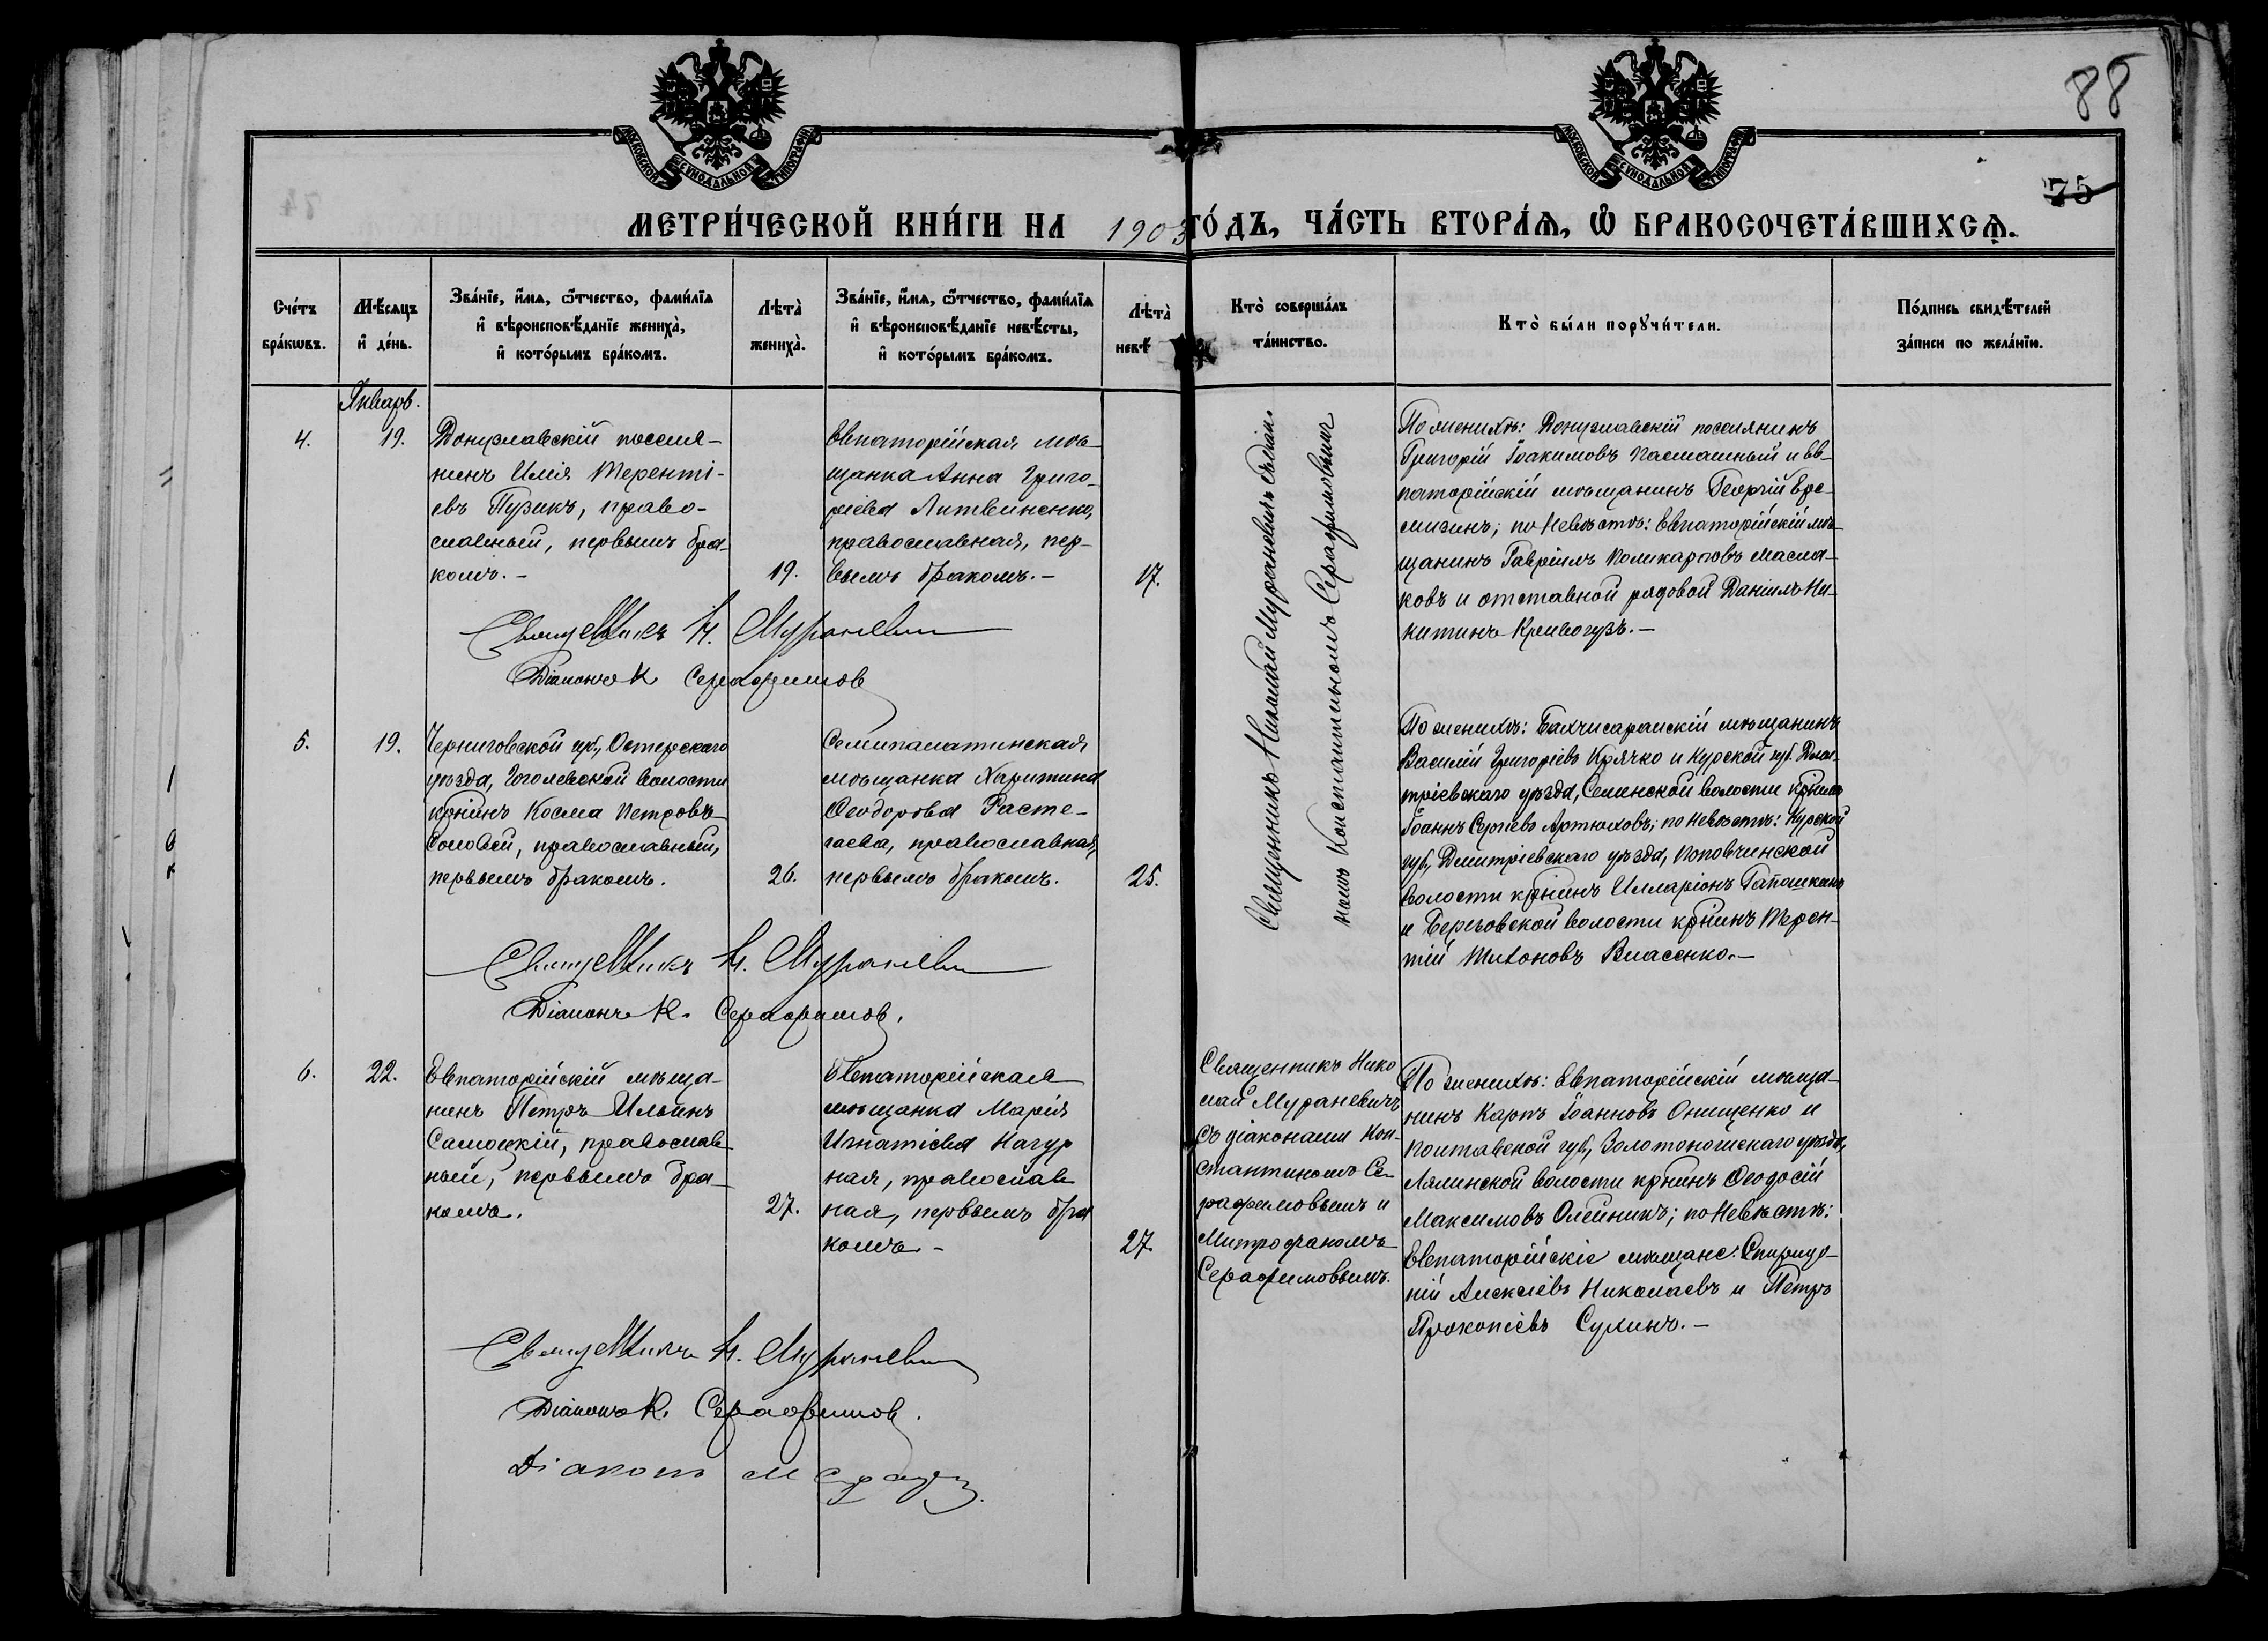 88
75
МОСКОВСКОЙ СѴНОДАЛЬНОЙ ТИПОГРАФІИ
МОСКОВСКОЙ СѴНОДАЛЬНОЙ ТИПОГРАФІИ
МЕТРИ́ЧЕСКОЙ КНИ́ГИ НА 1903 ГО́ДЪ, ЧА́СТЬ ВТОРА́Ѧ, Ѡ҆ БРАКОСОЧЕТА́ВШИХСѦ.
Сче́тъ
бра́кѡвъ.
Мѣ́сѧцъ
и҆ де́нь.
Зва́нїе, и҆́мѧ, ѻ҆́тчество, фами́лїѧ
и҆ вѣроисповѣ́данїе жениха̀,
и҆ кото́рымъ бра́комъ.
Лѣта̀
жениха̀.
Зва́нїе, и҆́мѧ, ѻ҆́тчество, фами́лїѧ
и҆ вѣроисповѣ́данїе невѣ́сты,
и҆ кото́рымъ бра́комъ.
Лѣта̀
невѣ́
Кто̀ соверша́лъ
та́инство.
Кто̀ бы́ли порꙋчи́тели.
По́дпись свидѣ́телей
за́писи по жела́нїю.
Январь.
4.
19.
Донузлавскій поселя-
нинъ Илія Теренті-
евъ Пузикъ, право-
славный, первымъ бра-
комъ. -
19.
Евпаторійская мѣ-
щанка Анна Григо-
ріева Литвиненко,
православная, пер-
вымъ бракомъ. -
17.
Священникъ Николай Мураневичъ съ діако-
номъ Константиномъ Серафимовымъ
По женихѣ: Донузлавскій поселянинъ
Григорій Іоакимовъ Пасмашный и Ев-
паторійскій мѣщанинъ Георгій Ере-
мизинъ; по невѣстѣ: Евпаторійскій мѣ-
щанинъ Гавріилъ Поликарповъ Масла-
ковъ и отставной рядовой Даніилъ Ни-
китинъ Кривогузъ. -
Священникъ Н. Мураневич
Діаконъ К. Серафимов
5.
19.
Черниговской губ., Остерскаго
уѣзда, Гоголевской волости
крнинъ Косма Петровъ
Соловей, православный,
первымъ бракомъ.
26.
Семипалатинская
мѣщанка Харитина
Ѳеодорова Расте-
гаева, православная,
первымъ бракомъ.
25.
По женихѣ: Бахчисарайскій мѣщанинъ
Василій Григоріевъ Крячко и Курской губ. Дми-
тріевскаго уѣзда, Селинской волости крнинъ
Іоаннъ Сергіевъ Артюховъ; по невѣстѣ: Курской
губ., Дмитріевскаго уѣзда, Поповчинской
волости крнинъ Илларіонъ Гапошкинъ
и Березовской волости крнинъ Терен-
тій Тихоновъ Власенко. -
Священникъ Н. Мураневич
Діаконъ К. Серафимов.
6.
22.
Евпаторійскій мѣща-
нинъ Петръ Ильинъ
Самоцкій, православ
ный, первымъ бра-
комъ.
27.
Евпаторійская
мѣщанка Марія
Игнатіева Нагур
ная, православ
ная, первымъ бра
комъ -
27.
Священникъ Нико
лай Мураневичъ
съ діаконами Кон-
стантиномъ Се-
рафимовымъ и
Митрофаномъ
Серафимовымъ.
По женихѣ: Евпаторійскій мѣща-
нинъ Карпъ Іоанновъ Онищенко и
Полтавской губ., Золотоношскаго уѣзда,
Лялинской волости крнинъ Ѳеодосій
Максимовъ Олейникъ; по невѣстѣ:
Евпаторійскіе мѣщане: Спиридо-
ній Алексіевъ Николаевъ и Петръ
Прокопіевъ Сухинъ. -
Священникъ Н. Мураневич
Діаконъ К. Серафимов.
Діаконъ М